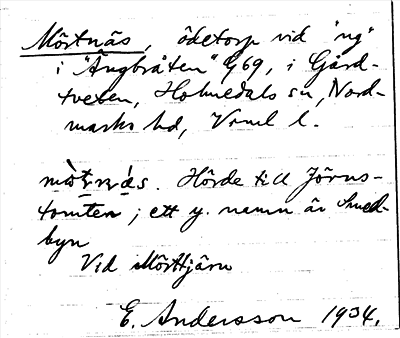 Mörtnäs, ödetorp vid "ng"
i "Ängbråten" G69, i Gård-
tveten, Holmedals sn, Nord-
marks hd, Vrml l.
Hörde till Jörns-
tomten; ett y. namn är Smed-
byn
Vid Mörttjärn
E. Andersson 1934.